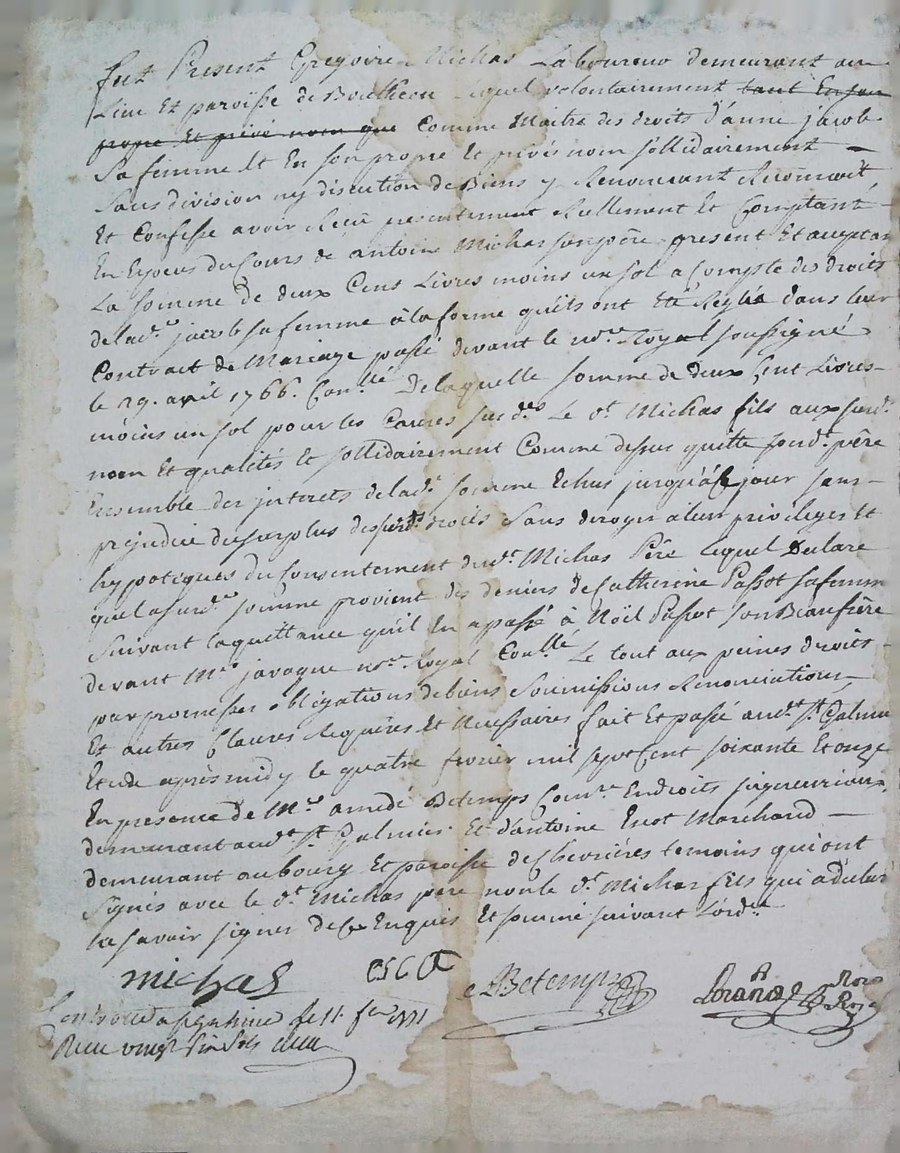 fut Present Gregoire Michas Laboureur demeurant au
Lieu Et paroisse de Boutheon lequel volontairement tant En son
propre Et privé nom que Comme Maitre des droits d'anne jacob
Sa femme Et En son propre Et privés nom sollidairement
sans division ny discution de Biens y Renoncant Reconnoit
Et Confesse avoir Reçu presentement Réellement Et Comptant
En Especes du Cours de antoine Michas son père present Et aceptan
La somme de deux Cens Livres moins un sol a Compte des droits
de lad.e jacob sa femme à la forme quils ont Eté Reglés dans leur
Contract de Mariage passé devant le n.re Royal soussigné
le 29. avril 1766. Con.llé De laquelle somme de deux Cent Livres
moins un sol pour les Causes susd.es Le d.t Michas fils aux susd.
nom Et qualités Et sollidairement Comme dessus quitte sond.t père
Ensemble des jnterets de lad.e somme Echus jusqu'à Ce jour sans
prejudice du surplus desd.ts droits Sans deroger a leur privileges Et
hypotiques du Consentement dud.t Michas Père lequel Declare
que la susd.e somme provient des deniers de Catherine Passot sa femme
Suivant la quittance qu'il En a passé à Nöel Passot son Beaufrère
devant M.e javogue n.re Royal Con.llé Le tout aux peines de droits
par promesses obligations de biens Soumissions Renonciations
Et autres Clauses Requises Et Necessaires fait Et passé aud.t S.t Galmier
Etude après midy le quatre fevrier mil sept Cent soixante Et onze
En presence de M.e amedé Betemps Com.re En droits seigneuriaux
demeurant aud.t S.t Galmier Et d'antoine Escot Marchand
demeurant au bourg Et paroisse de Chevrières temoins qui ont
Signés avec le d.t Michas père non le d.t Michas fils qui a déclaré
ne savoir signer de Ce Enquis Et sommé suivant L'ord.ce
michas escot Betemps
Controllé a S.t Galmier le 11. fev. 1771
Reçu vingt six sols